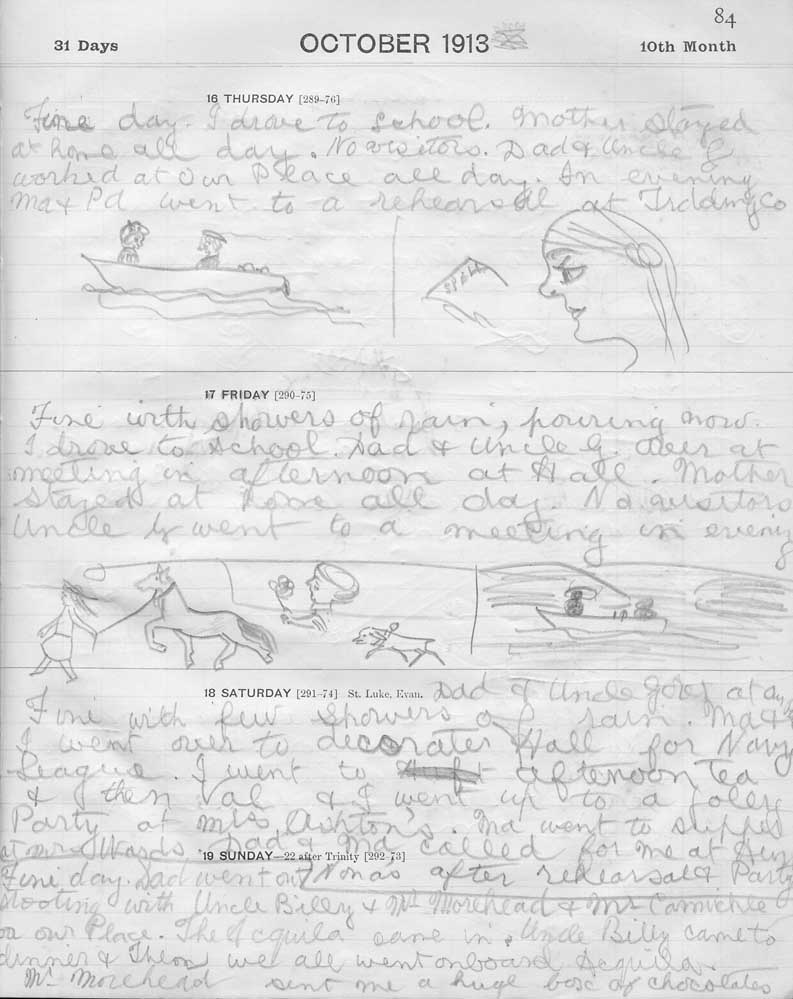 84
31 Days OCTOBER 1913 10th Month
16 THURSDAY [289-76]
Fine day. I drove to school. Mother stayed
at home all day. No visitors. Dad & Uncle G
worked at our Place all day. In evening
Ma & Pd went to a rehearsal at
17 FRIDAY [290-75]
Fine with showers of rain, pouring now.
I drove to school. Dad & Uncle G. at
meeting in afternoon at Hall. Mother
stayed at home all day. No visitors
Uncle G went to a meeting in evening
18 SATURDAY [291-74] St. Luke, Evan. Dad & Uncle at
Fine with few showers of rain. Ma &
I went over to decorate Hall for Navy
League. I went to afternoon Tea
& then Val & I went up to a foley
Party at Miss Ashton's. Ma went to supper
at Mrs Wards. Dad & Ma called for me at
19 SUNDAY—22 after Trinity [292-73]
Nonas after rehearsal & Party
Fine day. Dad went out
shooting with Uncle Billy & Mr Morehead & Mr
on our Place. The Acquila came in. Uncle Billy came to
dinner & then we all went onboard Acquilla.
Mr Morehead sent me a huge box of chocolates